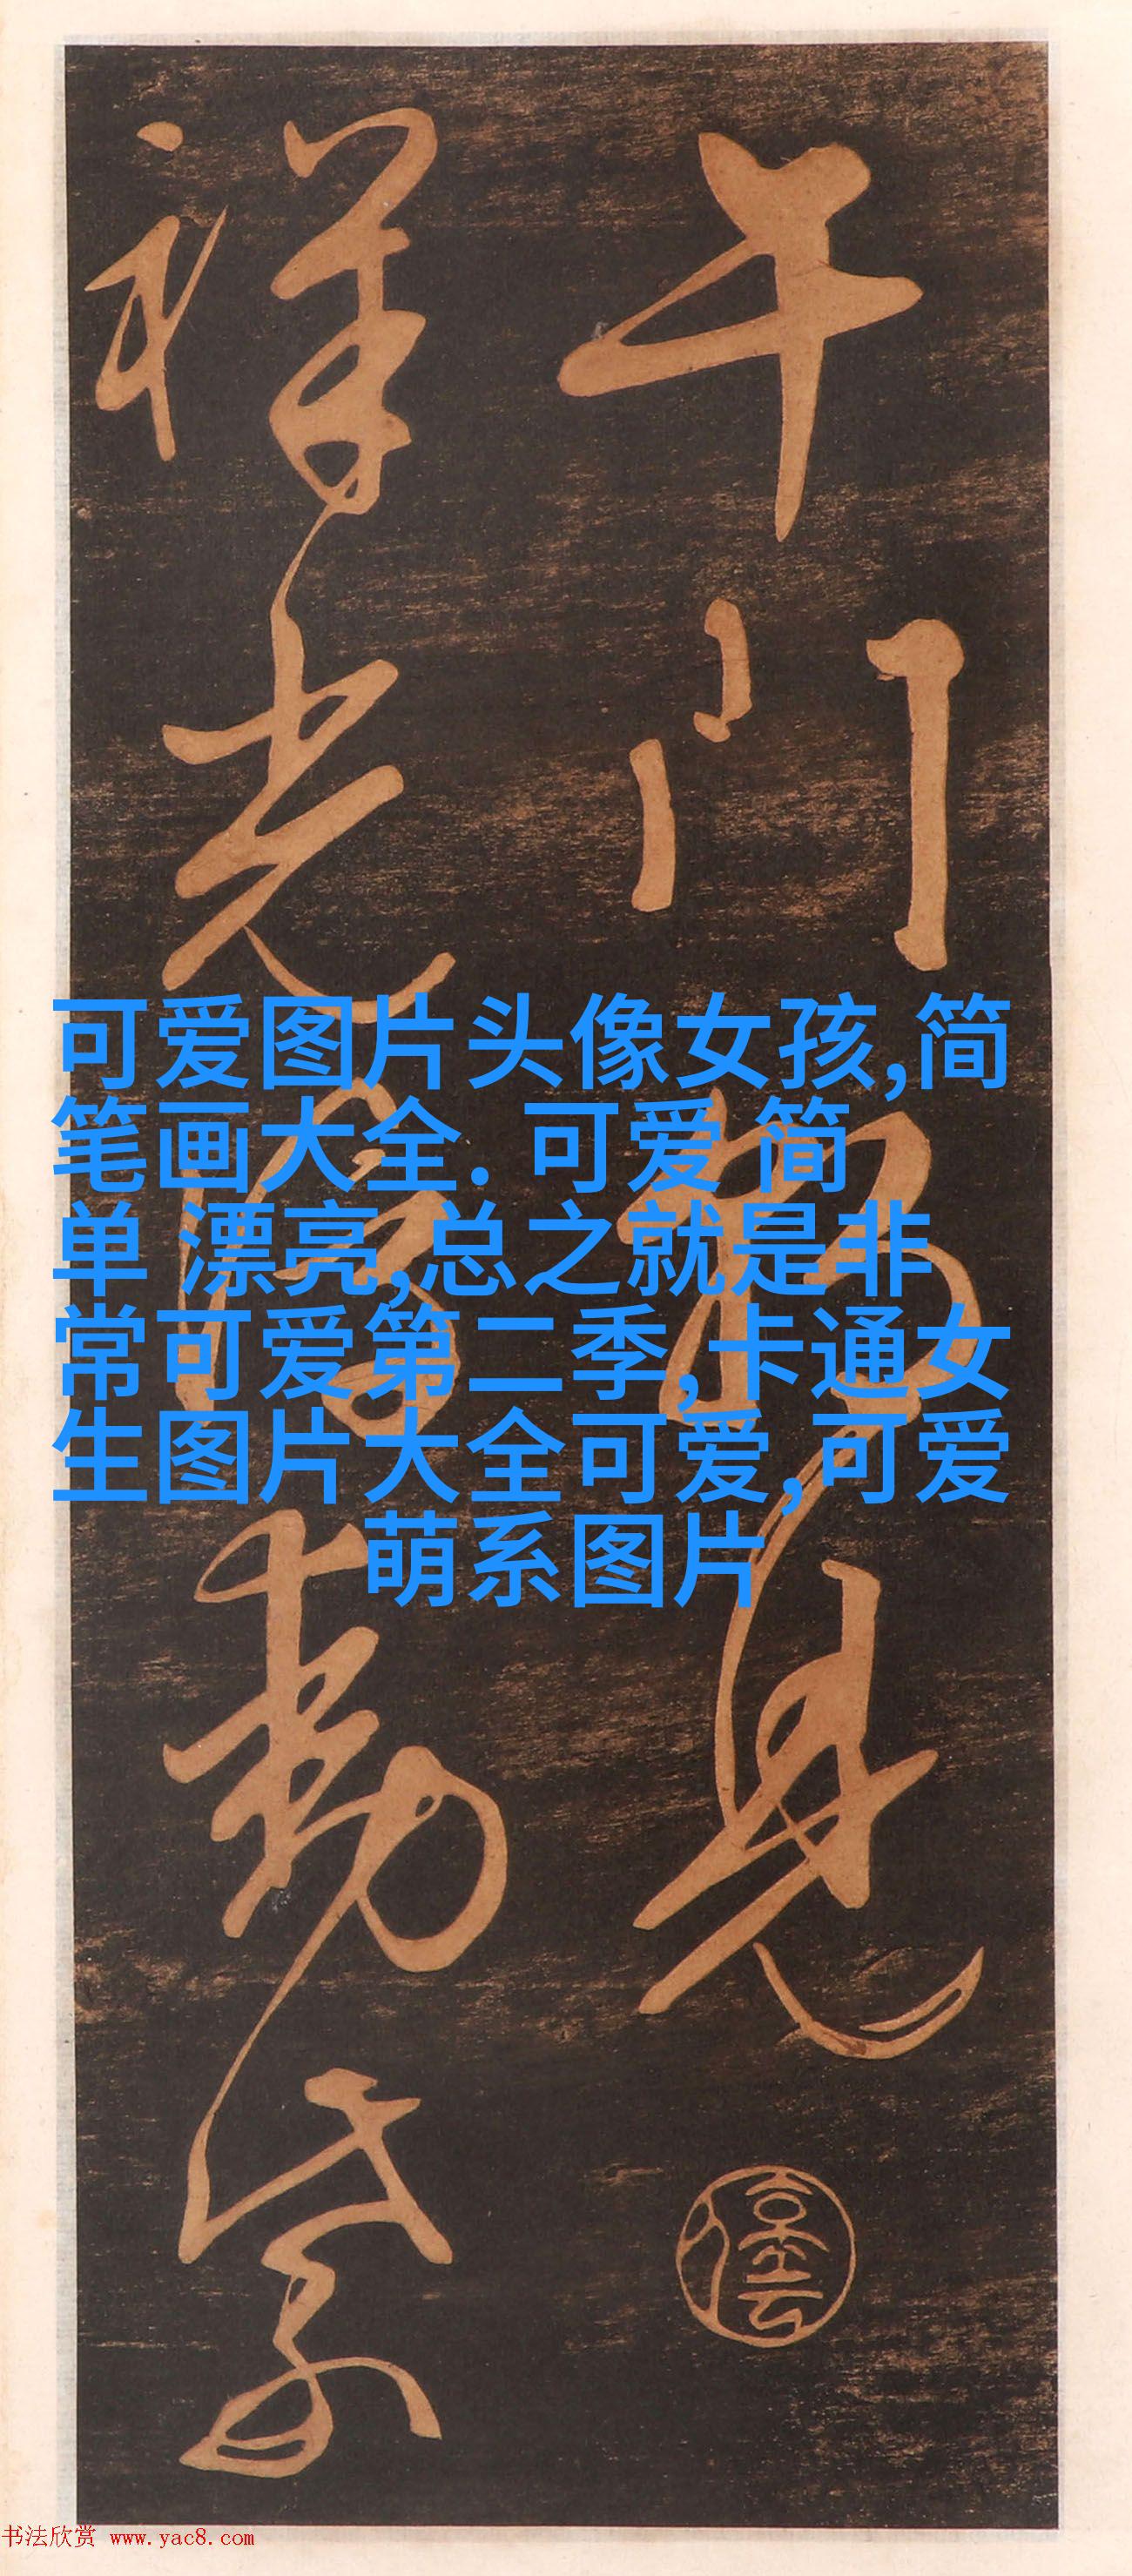 午門見
祥光動紫
可爱图片头像女孩,简
笔画大全. 可爱 简
单 漂亮,总之就是非
常可爱第二季,卡通女
生图片大全可爱,可爱
萌系图片
书法欣赏 www.yac8.com